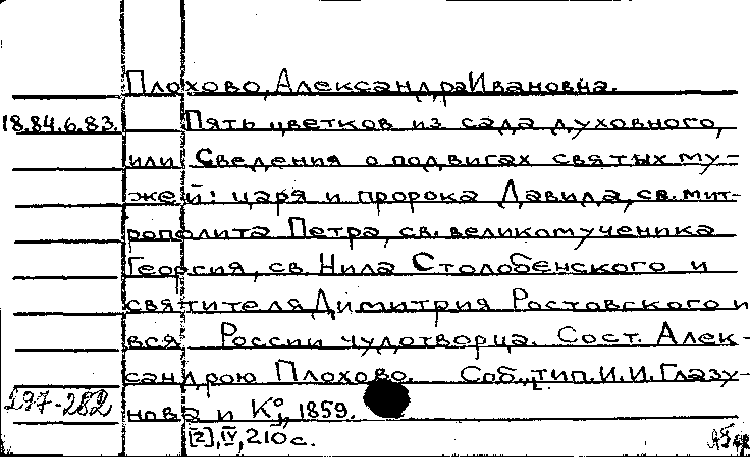 Плохово, Александра Ивановна.
18.84.6.83.
Пять цветков из сада духовного,
или Сведения о подвигах святых му-
жей: царя и пророка Давида, св. мит-
рополита Петра, св. великомученика
Георгия, св. Нила Столобенского и
святителя Димитрия Ростовского и
вся России чудотворца. Сост. Алек-
сандрою Плохово. Спб., тип. И.И. Глазу-
нова и К°, 1859.
197-282
[2], IV, 210 с.